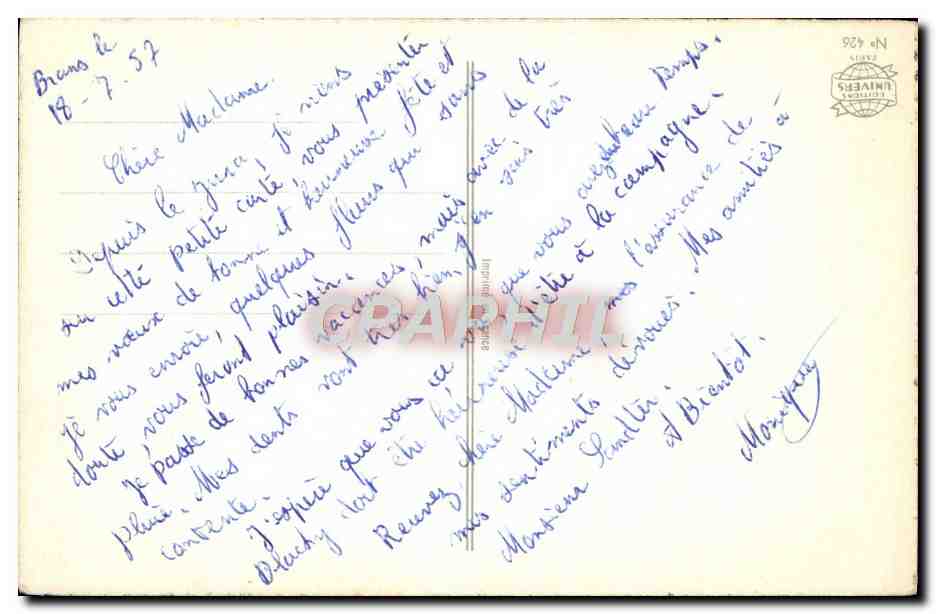 Brans le
18-7.57
Chère Madame.
Depuis le Jura je viens
sur cette petite carte, vous présenter
mes vœux de bonne et heureuse fête et
je vous envoie quelques fleurs qui sans
doute, vous feront plaisir.
Je passe de bonnes vacances, mais avec de la
pluie. Mes dents vont très bien, j'en suis très
contente.
J'espère que vous avez du beau temps.
doit être heureuse d'être à la campagne.
Recevez, chère Madame, mes l'assurance de
mes sentiments dévoués. Mes amitiés à
Monsieur
et Bientôt.
Monique
N° 426
EDITIONS
UNIVERS
PARIS
CPARPHIL